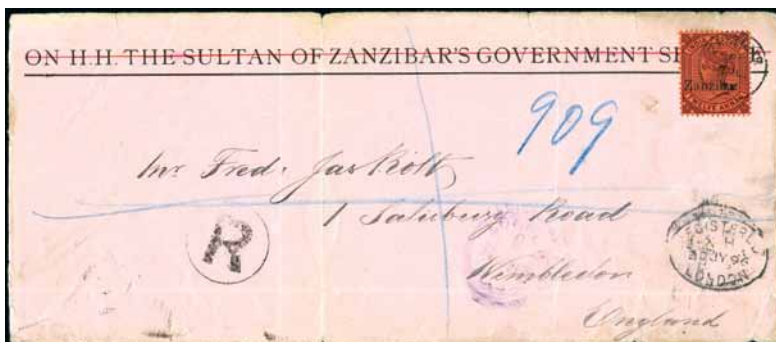 ON H.H. THE SULTAN OF ZANZIBAR'S GOVERNMENT
Zanzibar
909
Mr Fred. Jas
1 Salisbury Road
Wimbledon
England
R
LONDON